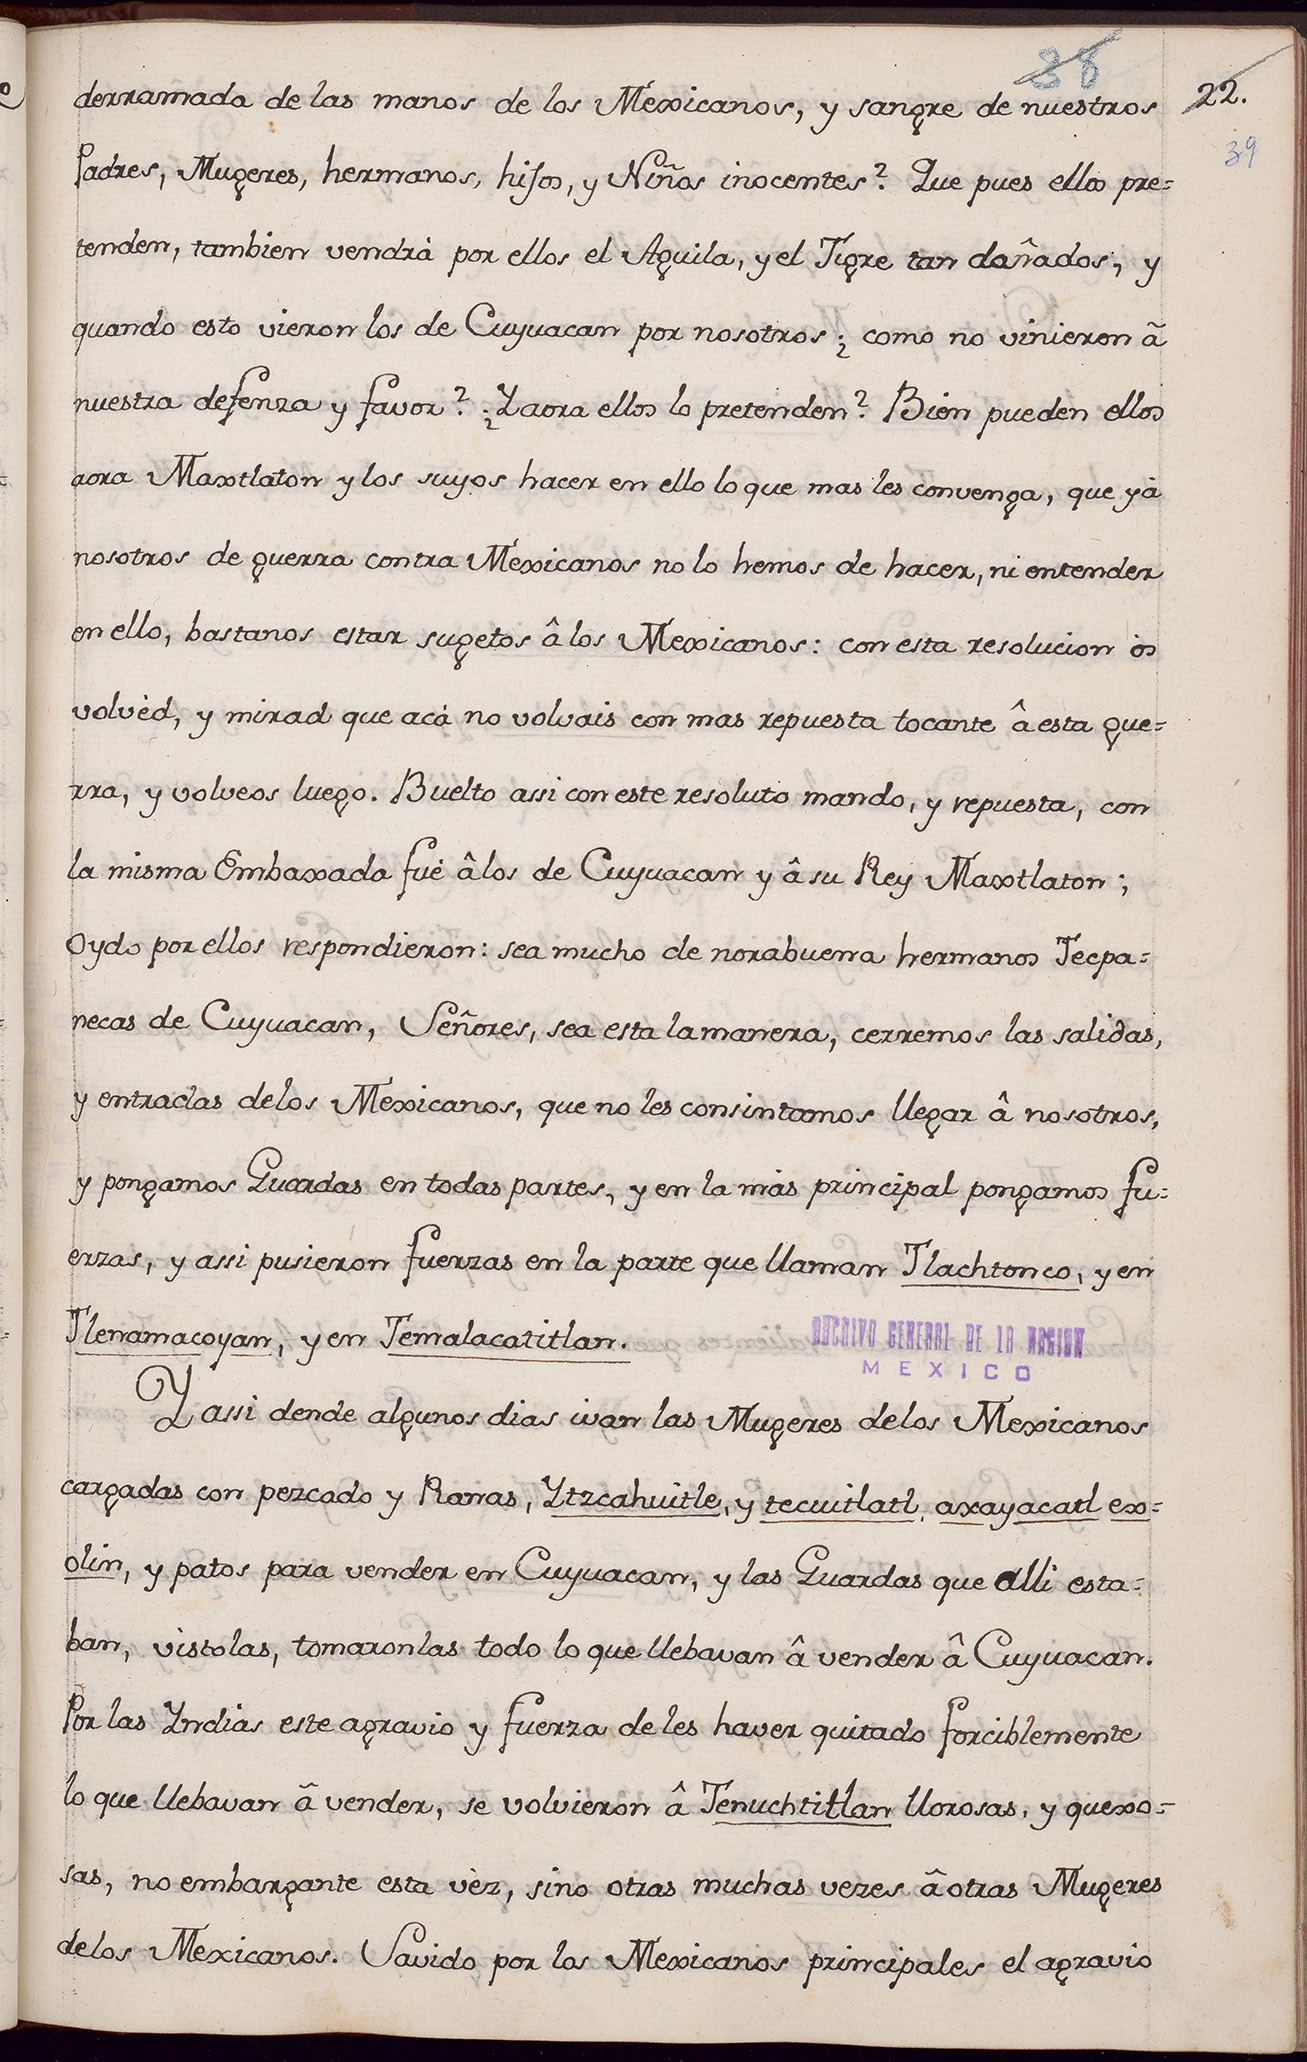 38
22.
39
derramada de las manos de los Mexicanos, y sangre de nuestros
Padres, Mugeres, hermanos, hijos, y Niños inocentes? Que pues ellos pre=
tenden, tambien vendrà por ellos el Aguila, y el Tigre tan dañados, y
quando esto vieron los de Cuyuacan por nosotros; ¿como no vinieron â
nuestra defenza y favor? ¿Y aora ellos lo pretenden? Bien pueden ellos
aora Maxtlaton y los suyos hacer en ello lo que mas les convenga, que yà
nosotros de guerra contra Mexicanos no lo hemos de hacer, ni entender
en ello, bastanos estar sugetos â los Mexicanos: con esta resolucion òs
volvèd, y mirad que acà no volvais con mas repuesta tocante â esta gue=
rra, y volveos luego. Buelto assi con este resoluto mando, y repuesta, con
la misma Embaxada fuè â los de Cuyuacan y â su Rey Maxtlaton;
Oydo por ellos respondieron: sea mucho de norabuena hermanos Tecpa=
necas de Cuyuacan, Señores, sea esta la manera, cerremos las salidas,
y entradas de los Mexicanos, que no les consintamos llegar â nosotros,
y pongamos Guardas en todas partes, y en la màs principal pongamos fu=
erzas, y assi pusieron fuerzas en la parte que llaman Tlachtonco, y en
Tlenamacoyan, y en Temalacatitlan.
ARCHIVO GENERAL DE LA NACION
MEXICO
Y assi dende algunos dias ivan las Mugeres de los Mexicanos
cargadas con pezcado y Ranas, Ytzcahuitle, y tecuitlatl, axayacatl ex=
olin, y patos para vender en Cuyuacan, y las Guardas que alli esta=
ban, vistolas, tomaronlas todo lo que llebavan â vender â Cuyuacan.
Por las Yndias este agravio y fuerza de les haver quitado forciblemente
lo que llebavan â vender, se volvieron â Tenuchtitlan llorosas, y quexo=
sas, no embargante esta vèz, sino otras muchas vezes â otras Mugeres
de los Mexicanos. Savido por los Mexicanos principales el agravio